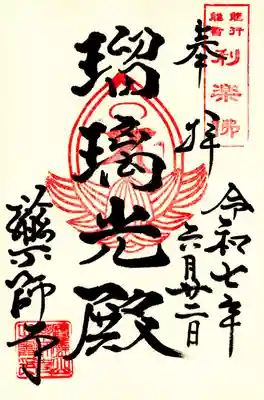 奉拝
利楽佛
令和七年
六月廿二日
瑠璃光殿
薬師寺